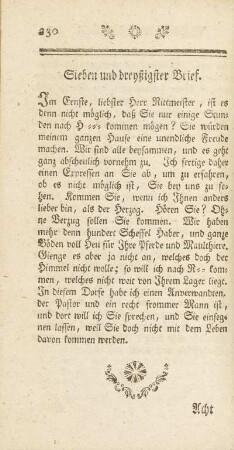 230
Sieben und dreyßigster Brief.
Im Ernste, liebster Herr Rittmeister, ist es
denn nicht möglich, daß Sie nur einige Stun-
den nach H--- kommen mögen? Sie würden
meinem ganzen Hause eine unendliche Freude
machen. Wir sind alle beysammen, und es geht
ganz abscheulich vornehm zu. Ich fertige daher
einen Expressen an Sie ab, um zu erfahren,
ob es nicht möglich ist, Sie bey uns zu se-
hen. Kommen Sie, wenn ich Ihnen anders
lieber bin, als der Herzog. Hören Sie? Oh-
ne Verzug sollen Sie kommen. Wir haben
mehr denn hundert Scheffel Haber, und ganze
Böden voll Heu für Ihre Pferde und Maulthiere.
Gienge es aber ja nicht an, welches doch der
Himmel nicht wolle; so will ich nach R-- kom-
men, welches nicht weit von Ihrem Lager liegt.
In diesem Dorfe habe ich einen Anverwandten,
der Pastor und ein recht frommer Mann ist,
und dort will ich Sie sprechen, und Sie einseg-
nen lassen, weil Sie doch nicht mit dem Leben
davon kommen werden.
Acht